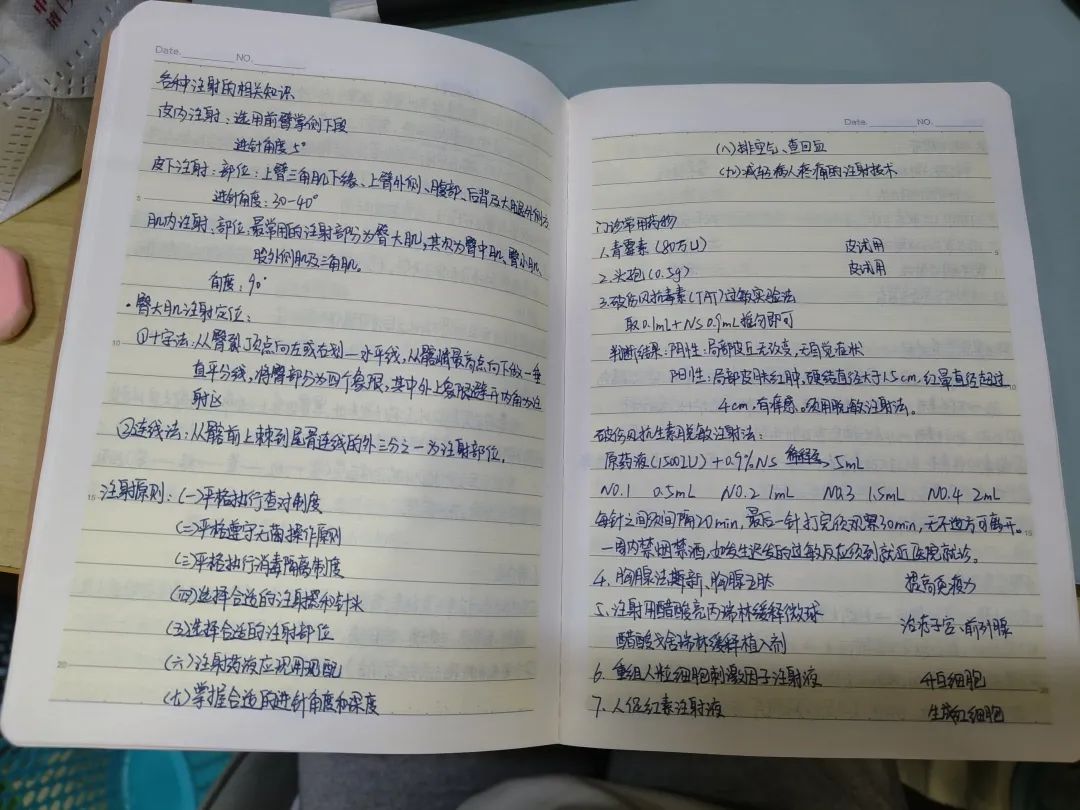 Date. NO.
各种注射的相关知识
皮内注射：选用前臂掌侧下段
进针角度5°
皮下注射：部位：上臂三角肌下缘、上臂外侧、腹部、后背及大腿外侧方
进针角度：30-40°
肌内注射、部位、最常用的注射部分为臀大肌，其次为臀中肌、臀小肌、
股外侧肌及三角肌。
角度：90°
·臀大肌注射定位：
①十字法：从臀裂顶点向左或右划一水平线，从髂嵴最高点向下做一垂
直平分线，将臀部分为四个象限，其中外上象限避开内角为注
射区
②连线法：从髂前上棘到尾骨连线的外三分之一为注射部位。
注射原则：(一)严格执行查对制度
(二)严格遵守无菌操作原则
(三)严格执行消毒隔离制度
(四)选择合适的注射器和针头
(五)选择合适的注射部位
(六)注射药液应现用现配
(七)掌握合适的进针角度和深度
5
10
15
20
Date. NO.
(八)排空气、查回血
(九)减轻病人疼痛的注射技术
门诊常用药物
1.青霉素(80万U) 皮试用
2.头孢(0.5g) 皮试用
3.破伤风抗毒素(TAT)过敏实验法
取0.1mL+NS0.9mL摇匀即可
判断结果：阴性：局部皮丘无改变，无自觉症状
阳性：局部皮肤红肿，硬结直径大于1.5cm，红晕直径超过
4cm，有痒感。须用脱敏注射法。
破伤风抗生素脱敏注射法：
原药液(1500IU)+0.9%NS 稀释至5mL
NO.1 0.5mL NO.2 1mL NO.3 1.5mL NO.4 2mL
每针之间须间隔20min，最后一针打完须观察30min，无不适方可离开。
一周内禁烟禁酒，如发生迟发的过敏反应须到就近医院就诊。
4.胸腺法斯新、胸腺五肽 提高免疫力
5.注射用醋酸亮丙瑞林缓释微球 治疗子宫、前列腺
醋酸戈舍瑞林缓释植入剂
6.重组人粒细胞刺激因子注射液 升白细胞
7.人促红素注射液 生成红细胞
5
15
20